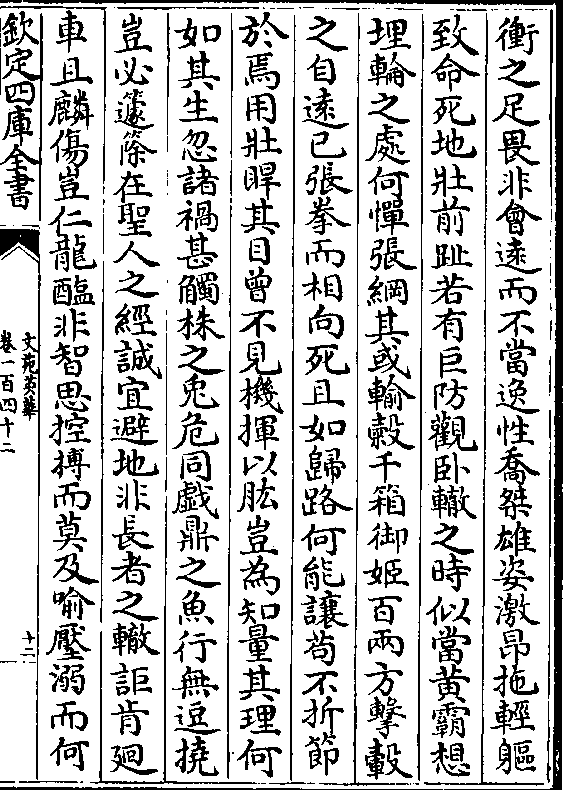 衝之足畏非會遠而不當逸性喬桀雄姿激昂拖輕軀
致命死地壯前趾若有巨防觀卧轍之時似當黄霸想
埋輪之處何憚張綱其或輸轂千箱御姬百兩方擊轂
之自遠已張拳而相向死且如歸路何能讓苟不折節
於焉用壯睅其目曾不見機揮以肱豈為知量其理何
如其生忽諸禍甚觸株之兎危同戯鼎之魚行無逗撓
豈必籧篨在聖人之經誠宜避地非長者之轍詎肯廻
車且麟傷豈仁龍醢非智思控搏而莫及喻壓溺而何
欽定四庫全書
文苑英華
卷一百四十二
十二